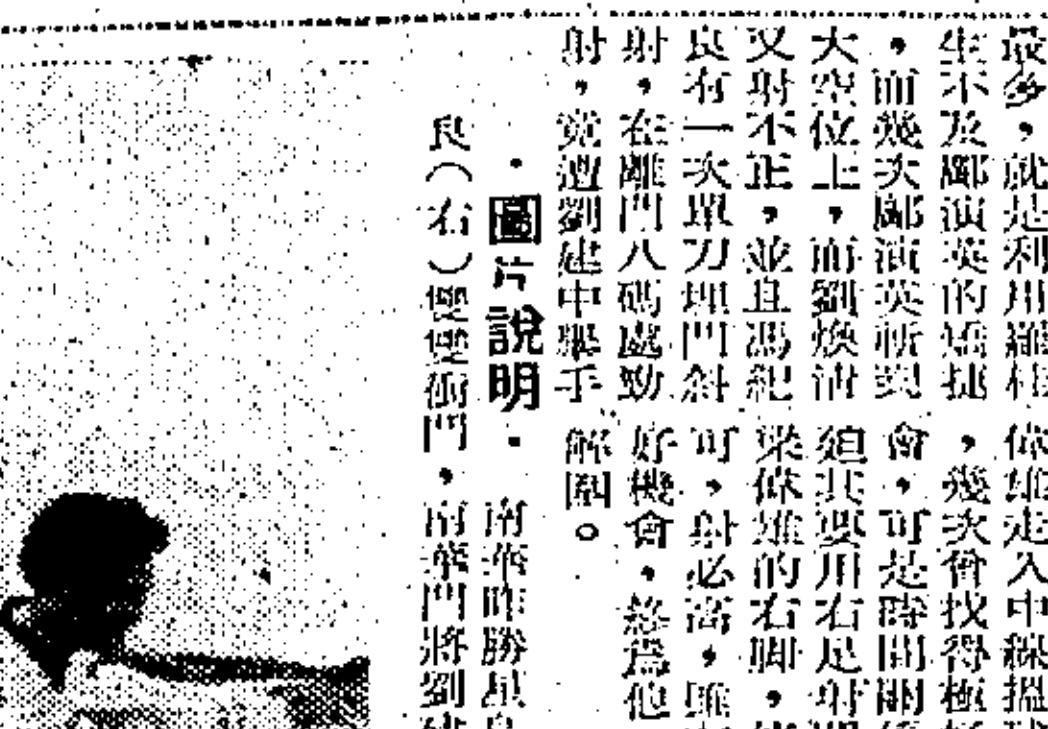 最多，就是利用羅桂
生不及鄺演英的矯捷
，而幾次鄺演英斬到
大空位上，而劉煥清
又射不正，並且馮紀
良有一次單刀埋門斜
射，在離門八碼處勁
射，竟遭劉建中舉手
雄走入中線搵
，幾次曾找得極
會，可是時間關
廹其要用右足射
梁偉雄的右脚，
可，射必高，雖
好機會，終爲他
解圍。
・圖片說明・南華昨勝星島
良（右）雙雙衝門，南華門將劉建